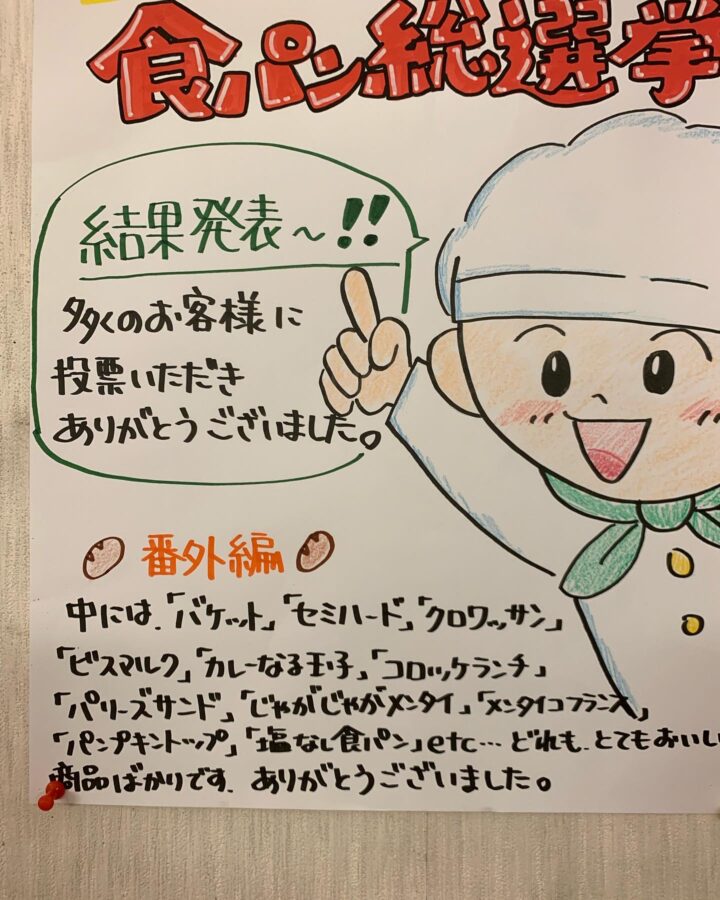 食パン総選挙
結果発表〜!!
多くのお客様に
投票いただき
ありがとうございました。
番外編
中には、「バケット」「セミハード」「クロワッサン」
「ビスマルク」「カレーなる王子」「コロッケランチ」
「パリーズサンド」「じゃがじゃがメンタイ」「メンタイコフランス」
「パンプキントップ」「塩なし食パン」etc… どれも、とてもおいし
商品ばかりです。ありがとうございました。